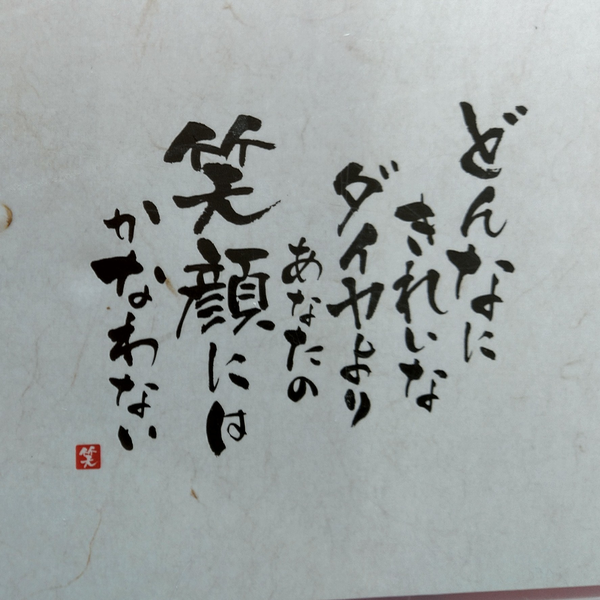 どんなに
きれいな
ダイヤより
あなたの
笑顔には
かなわない
笑